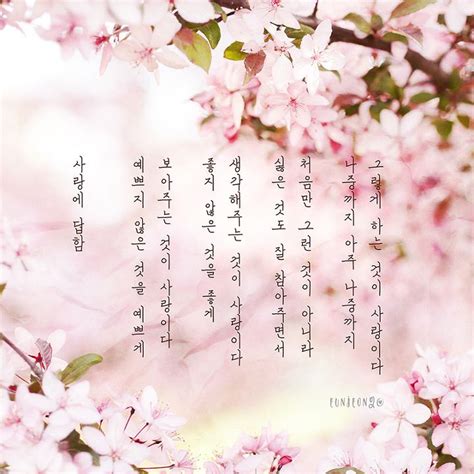 사랑에 답함
예쁘지 않은 것을 예쁘게
보아주는 것이 사랑이다
좋지 않은 것을 좋게
생각해주는 것이 사랑이다
싫은 것도 잘 참아주면서
처음만 그런 것이 아니라
나중까지 아주 나중까지
그렇게 하는 것이 사랑이다